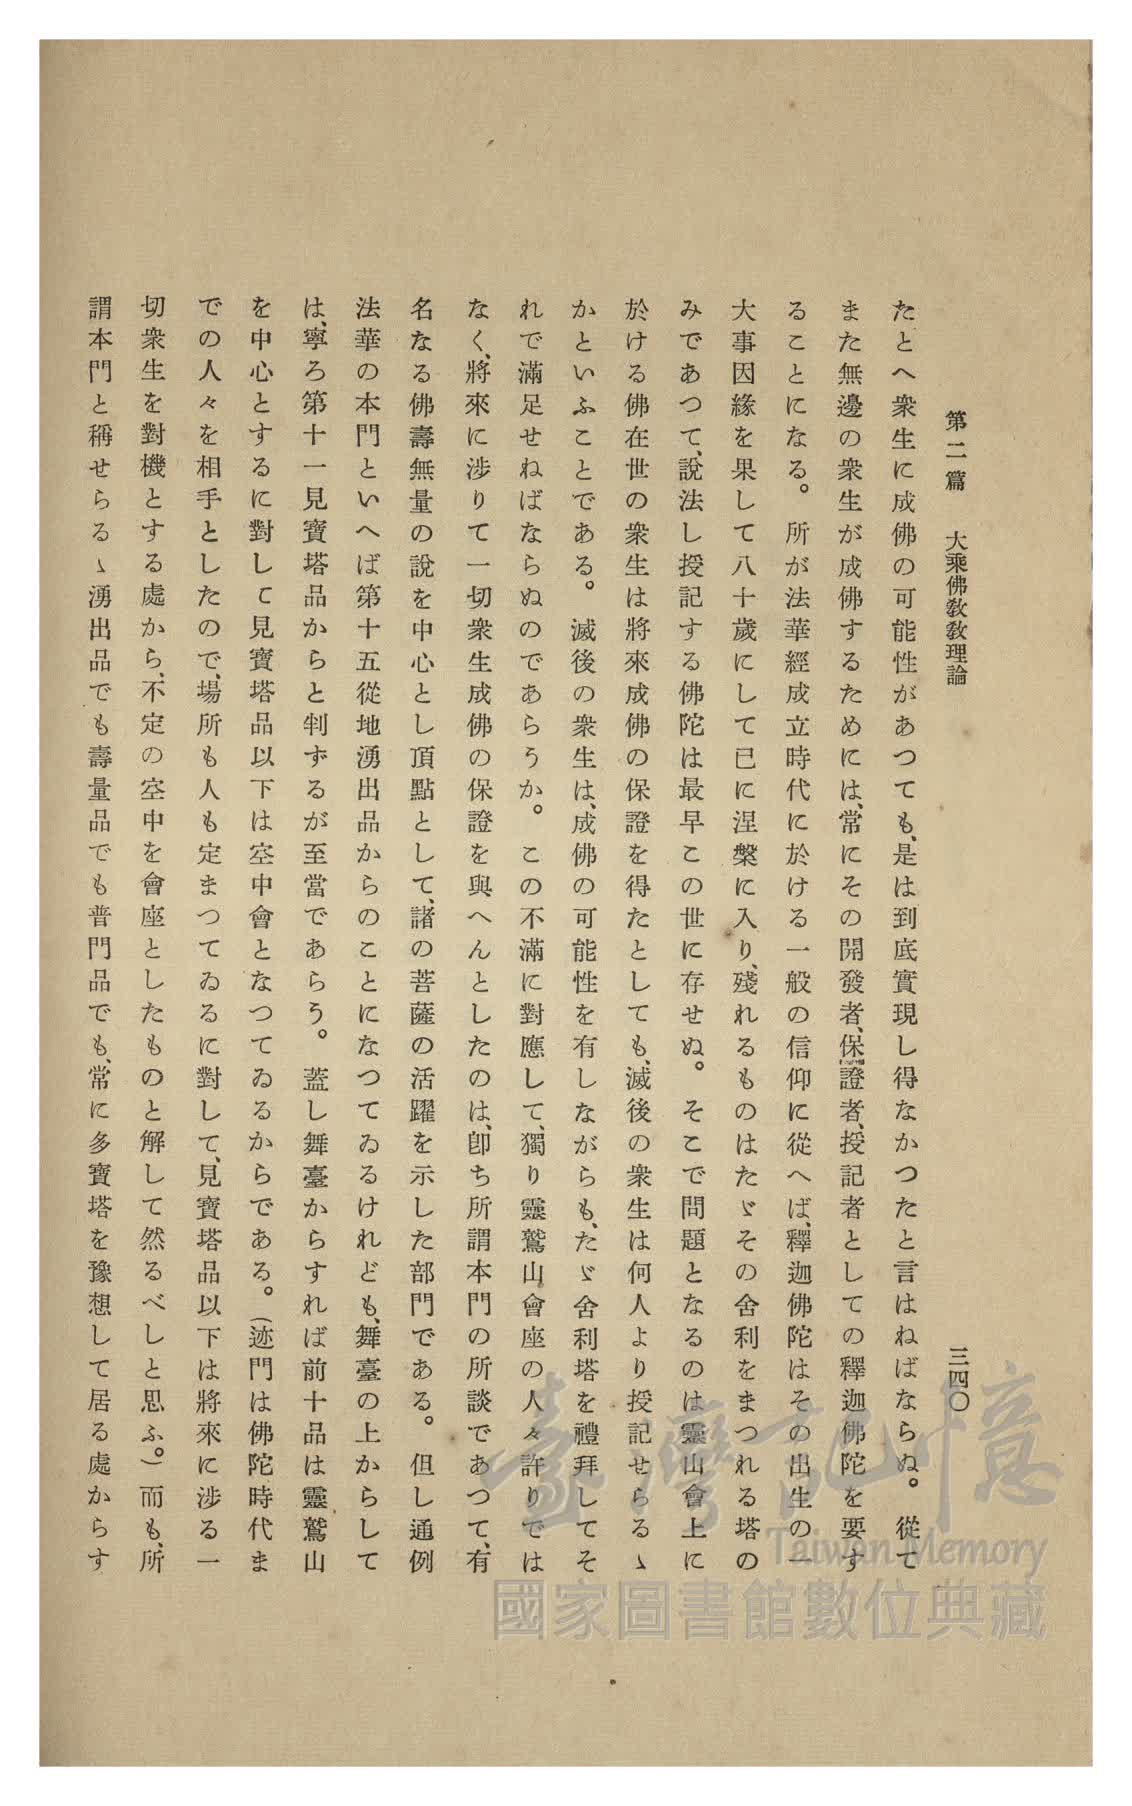 第二篇　大乘佛敎敎理論　三四〇
たとへ衆生に成佛の可能性があつても、是は到底實現し得なかつたと言はねばならぬ。從て
また無邊の衆生が成佛するためには、常にその開發者、保證者、授記者としての釋迦佛陀を要す
ることになる。所が法華經成立時代に於ける一般の信仰に從へば、釋迦佛陀はその出生の一
大事因緣を果して八十歲にして已に涅槃に入り、殘れるものはたゞその舍利をまつれる塔の
みであつて、說法し授記する佛陀は最早この世に存せぬ。そこで問題となるのは靈山會上に
於ける佛在世の衆生は將來成佛の保證を得たとしても、滅後の衆生は何人より授記せらるゝ
かといふことである。滅後の衆生は、成佛の可能性を有しながらも、たゞ舍利塔を禮拜してそ
れで滿足せねばならぬのであらうか。この不滿に對應して、獨り靈鷲山會座の人々許りでは
なく、將來に涉りて一切衆生成佛の保證を與へんとしたのは、卽ち所謂本門の所談であつて、有
名なる佛壽無量の說を中心とし頂點として、諸の菩薩の活躍を示した部門である。但し通例
法華の本門といへば第十五從地湧出品からのことになつてゐるけれども、舞臺の上からして
は、寧ろ第十一見寶塔品からと判ずるが至當であらう。蓋し舞臺からすれば前十品は靈鷲山
を中心とするに對して見寶塔品以下は空中會となつてゐるからである。(迹門は佛陀時代ま
での人々を相手としたので、場所も人も定まつてゐるに對して、見寶塔品以下は將來に涉る一
切衆生を對機とする處から、不定の空中を會座としたものと解して然るべしと思ふ。)而も、所
謂本門と稱せらるゝ湧出品でも壽量品でも普門品でも、常に多寶塔を豫想して居る處からす
臺灣記憶
Taiwan Memory
國家圖書館數位典藏